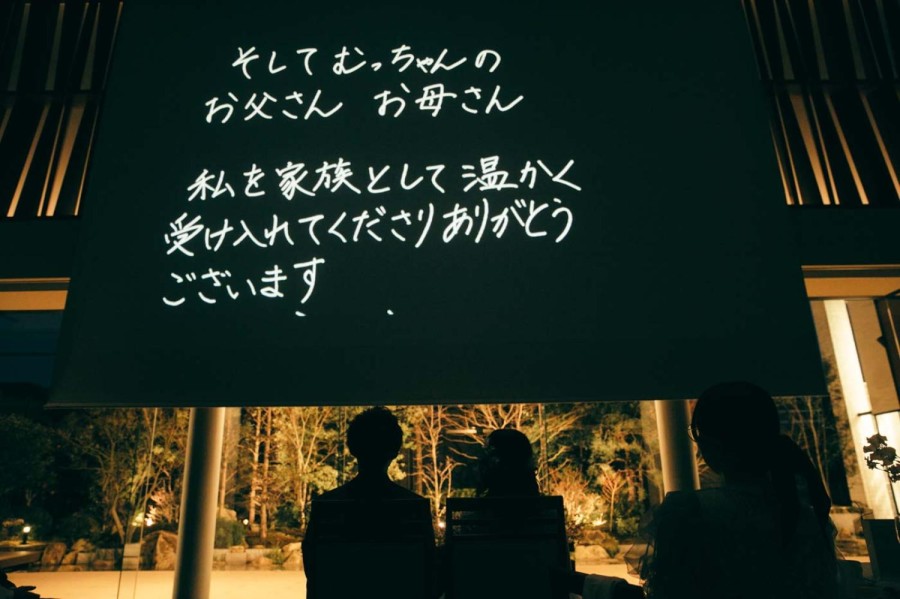 そしてむっちゃんの
お父さん お母さん
私を家族として温かく
受け入れてくださりありがとう
ございます